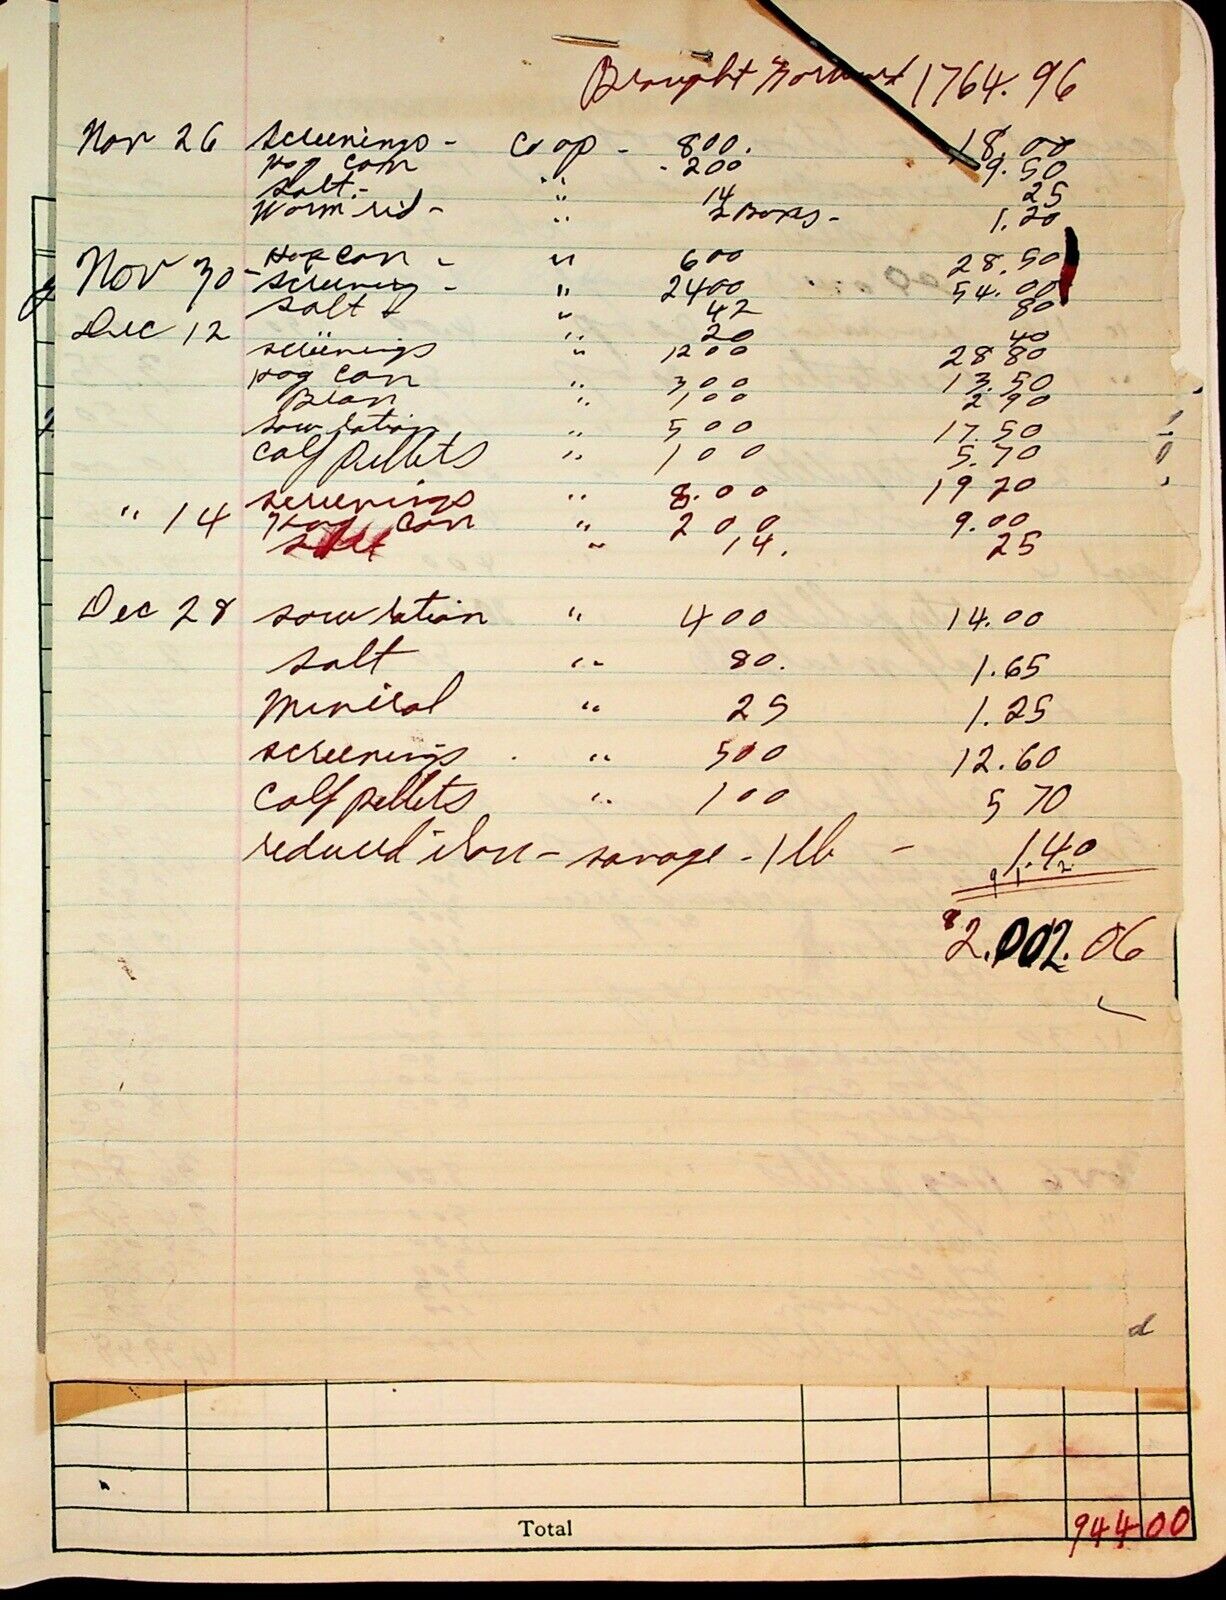 Brought Forward 1764.96
Nov 26 screenings - Co op - 800. 18.00
Hog Con - 200 9.50
Salt - " 14 25
Worm rid - " 2 Boxes - 1.20
Nov 30 - Hog Con - " 600 28.50
screening - " 2400 54.00
Salt " 42 80
Dec 12 " 20 40
screenings " 1200 28 80
Hog Con " 300 13.50
Bran " 100 2 90
Sow ration " 500 17.50
Calf pellets " 100 5.70
screenings " 8.00 19 20
" 14 Hog Con " 200 9.00
Salt " 14. 25
Dec 28 sow ration " 400 14.00
salt " 80. 1.65
Mineral " 25 1.25
screenings . " 500 12.60
Calf pellets " 100 5 70
reduced iron - savage - 1 lb - 1.40
9 1 2
2.002.06
d
Total 944 00